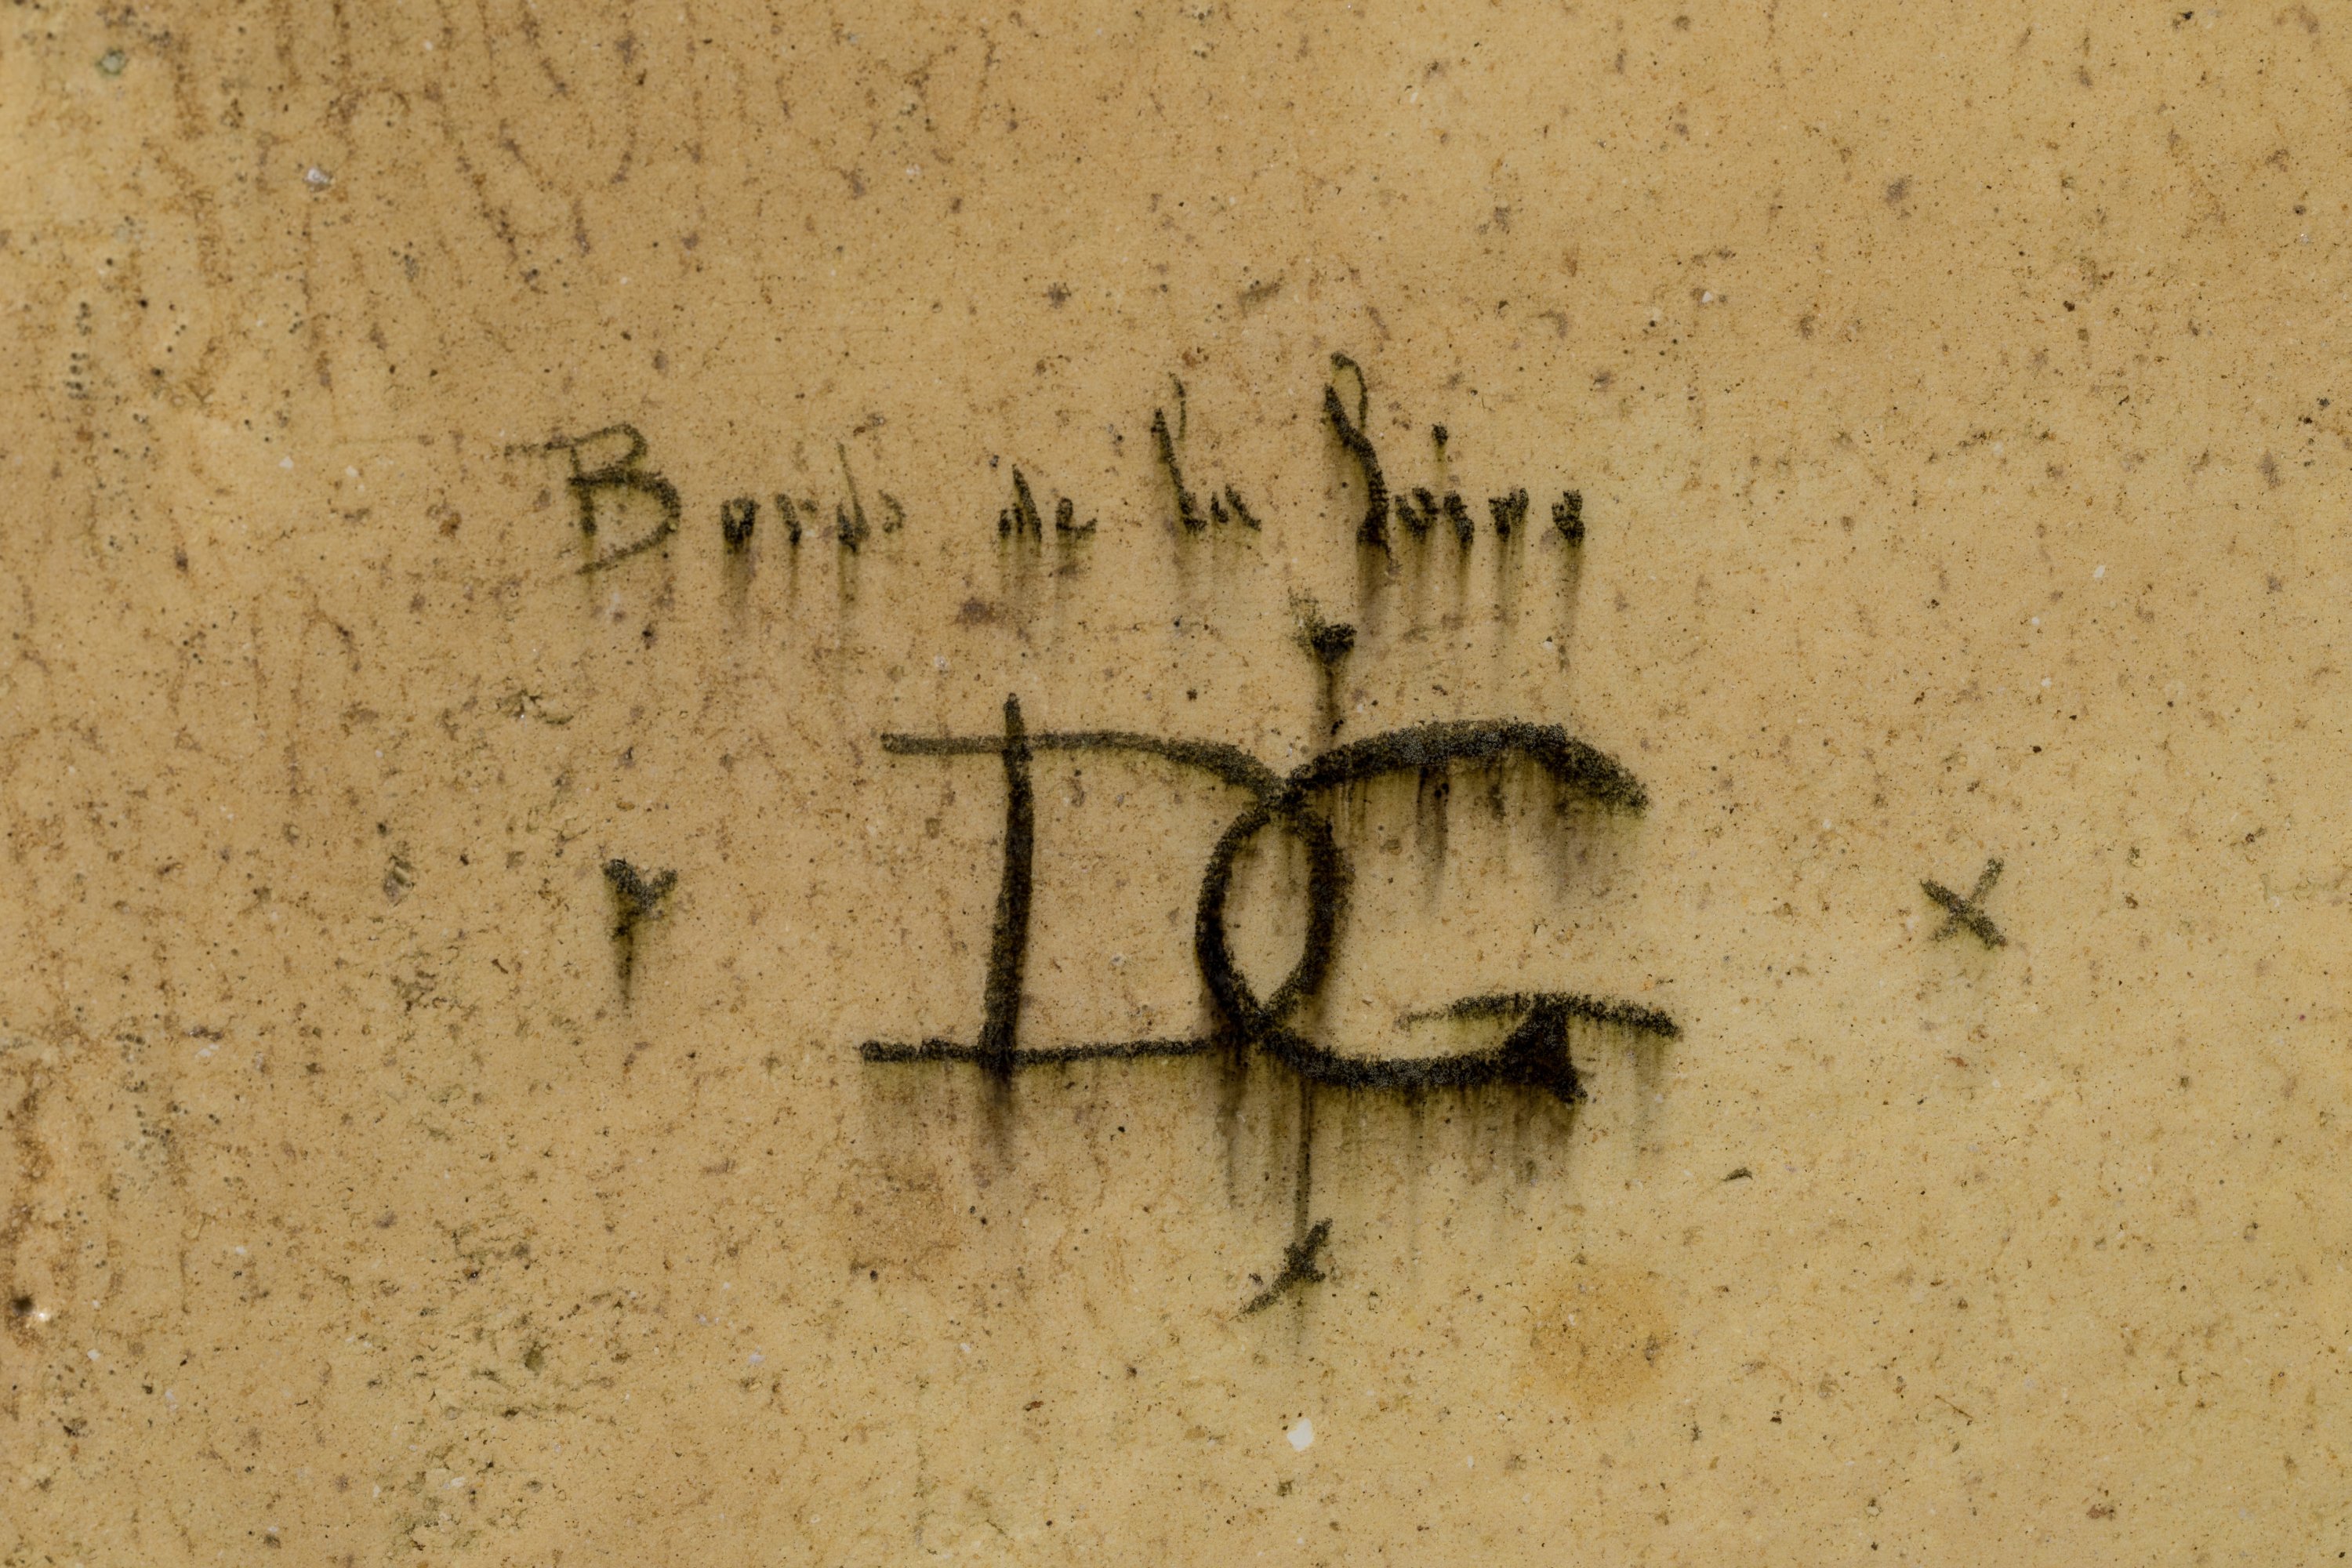 Bords de la Loire
DG